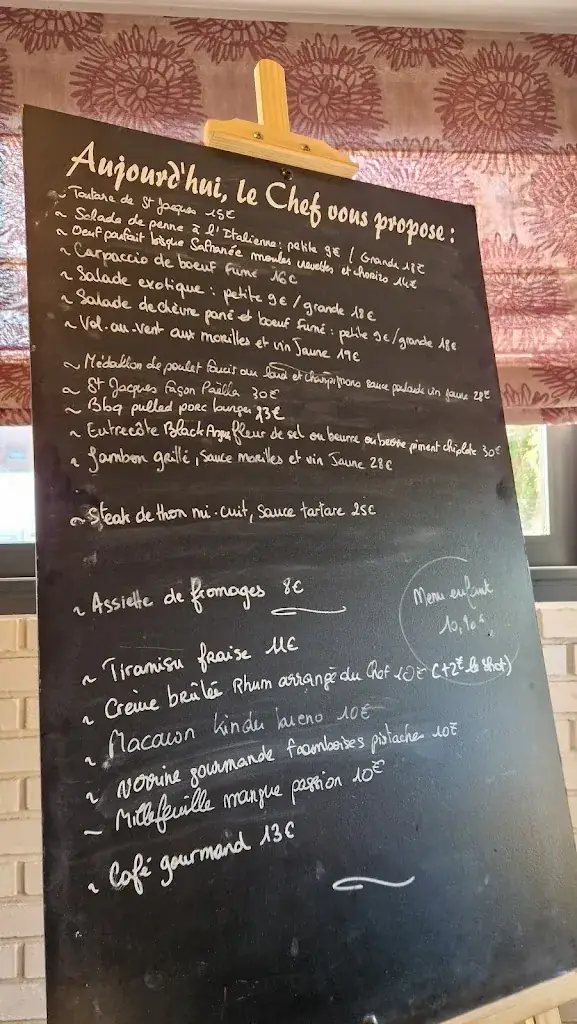 Aujourd'hui, le Chef vous propose :
~ Tartare de St Jacques 15€
~ Salade de penne à l'Italienne : petite 9€ / Grande 18€
~ Oeuf parfait bisque Safranée moules crevettes et chorizo 14€
~ Carpaccio de boeuf Fumé 16€
~ Salade exotique : petite 9€ / grande 18€
~ Salade de chèvre pané et boeuf Fumé : petite 9€ / grande 18€
~ Vol.au.vent aux morilles et vin Jaune 19€
~ Médaillon de poulet farcis au lard et champignons sauce poularde vin jaune 28€
~ St Jacques Façon Paëlla 30€
~ Bbq pulled porc burger 23€
~ Entrecôte Black Angus fleur de sel ou beurre ou beurre piment chipotle 30€
~ Jambon grillé, Sauce morilles et vin Jaune 28€
~ Steak de thon mi-cuit, Sauce tartare 25€
~ Assiette de fromages 8€
Menu enfant
10,90€
~ Tiramisu fraise 11€
~ Crème brûlée Rhum arrangé du Chef 10€ (+2€ le shot)
~ Macaron kinder bueno 10€
~ Verrine gourmande framboises pistaches 10€
~ Millefeuille mangue passion 10€
~ Café gourmand 13€